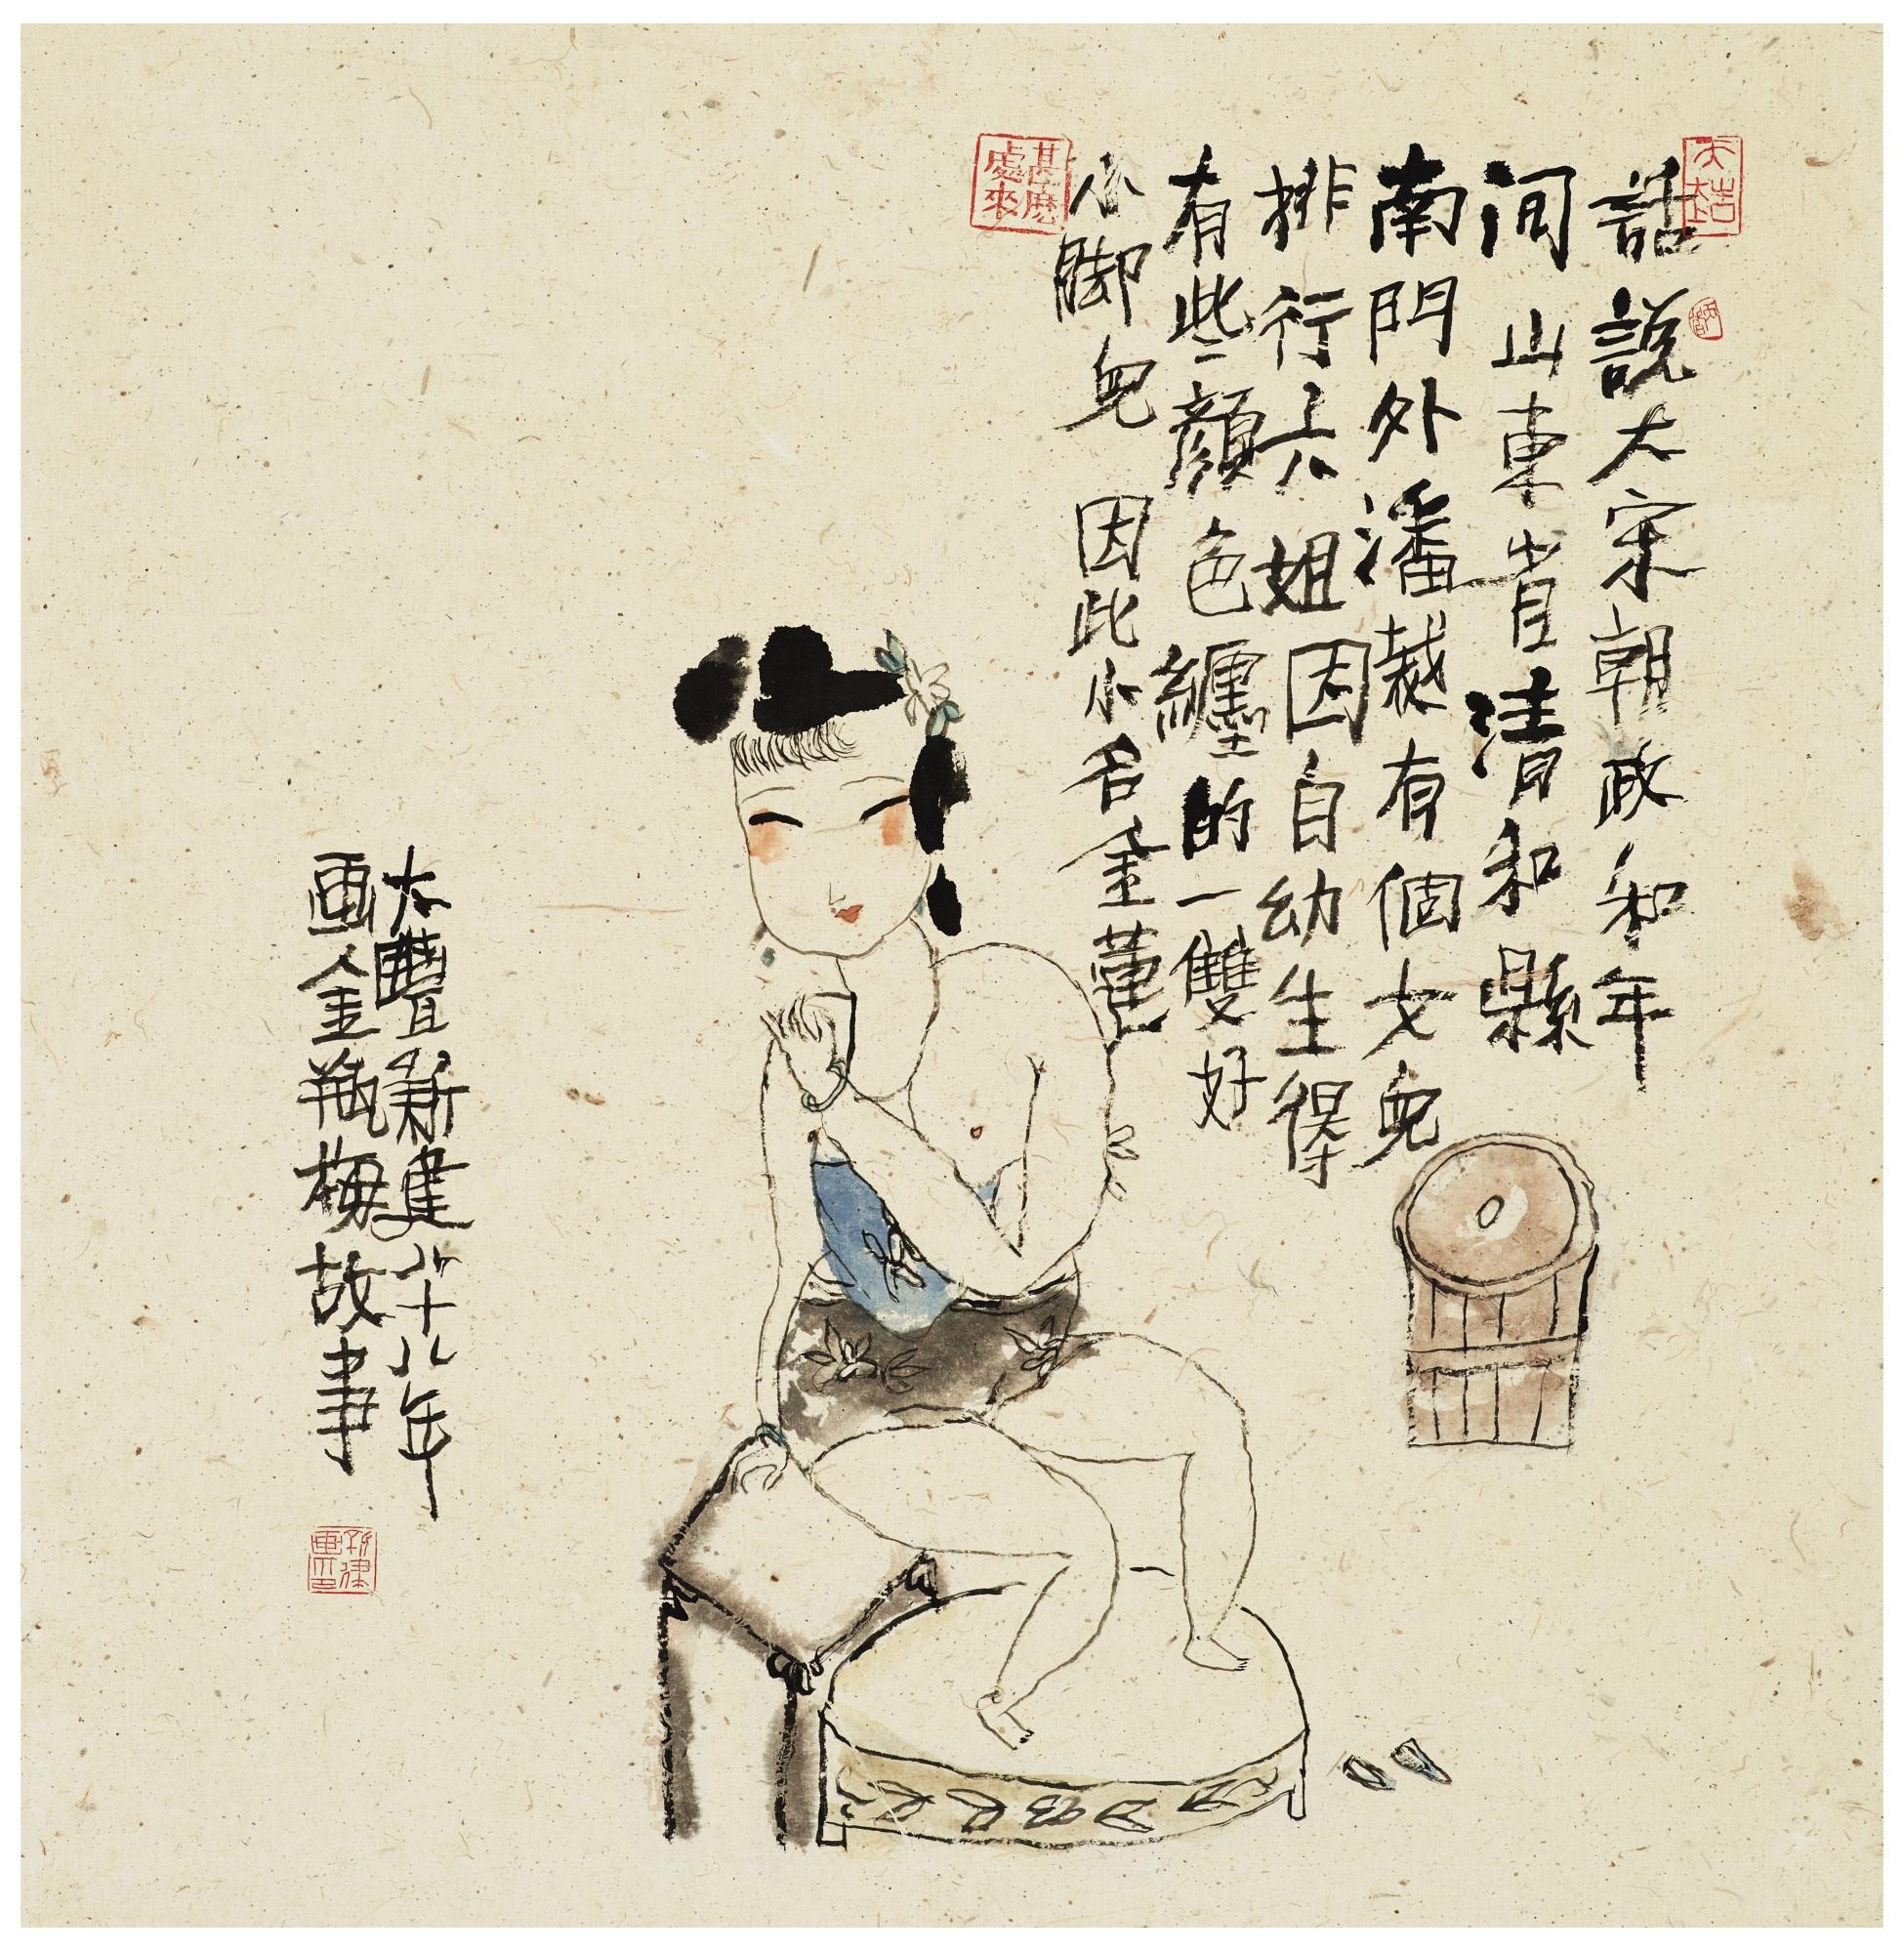 話説大宋朝政和年
间山東省清和縣
南門外潘裁有個女兒
排行六姐因自幼生得
有些顔色纏的一雙好
小脚兒 因此小名金蓮
甚麼處來
大豐新建八十八年
畫金瓶梅故事
新建畫印